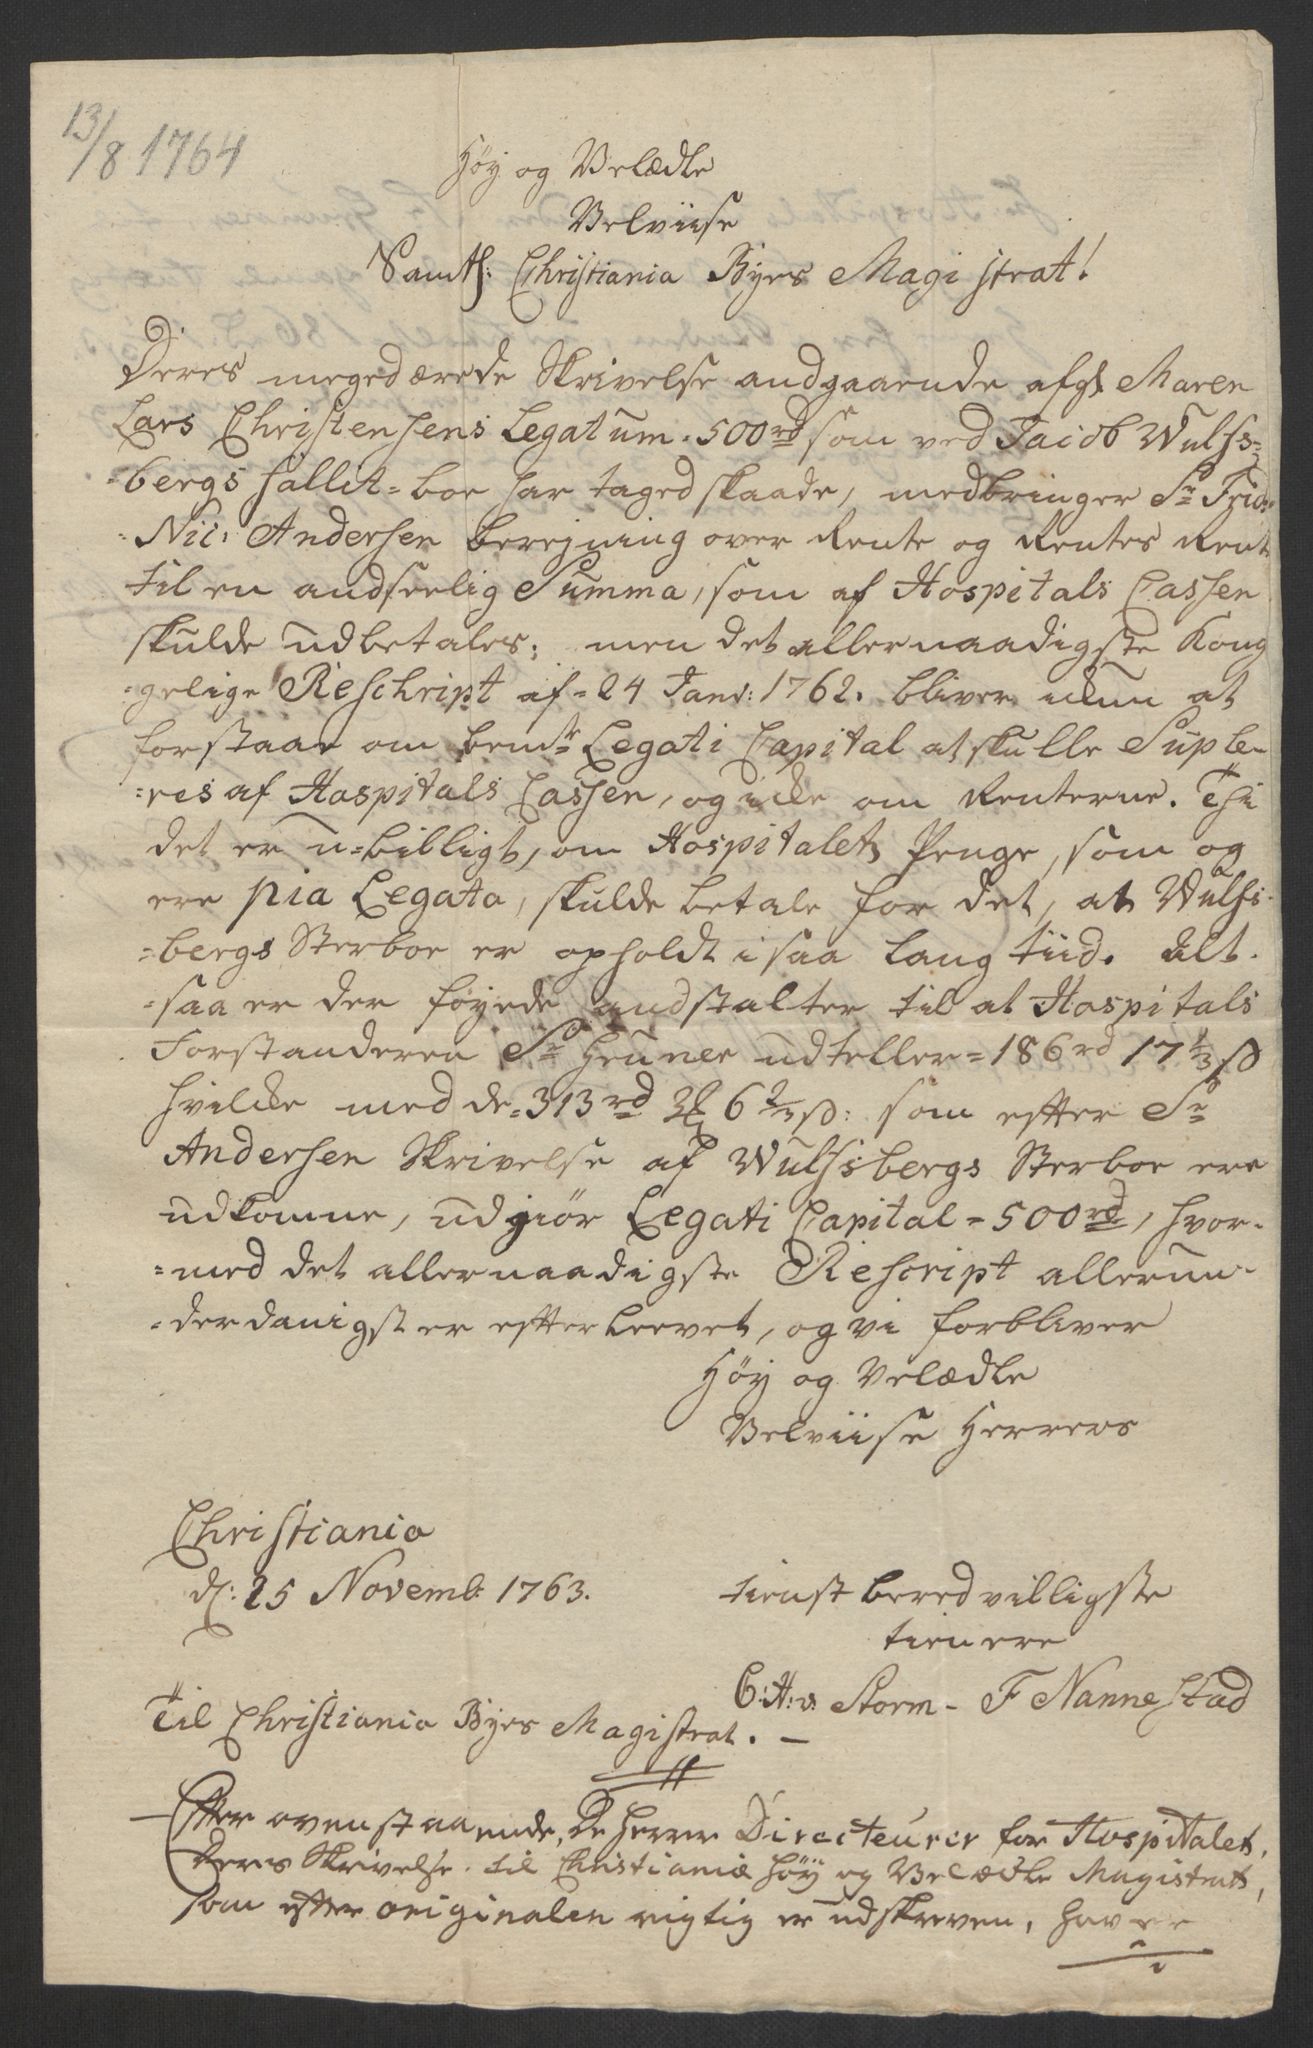 13/8 1764
Høy og Velædle
Velviise
Samtl: Christiania Byes Magistrat!
Deres megedærede Skrivelse andgaaende afgl Maren
Lars Christensens Legatum - 500 rd som ved Jacob Wulfs-
-bergs fallit-boe har taged skaade, medbringer Sr Frid:
Nic: Andersen beregning over Rente og Rentes Rent
til en andseelig Summa, som af Hospitals Cassen
skulde udbetales; men det allernaadigste Kong
-gelige Reschript af - 24 Janv: 1762. bliver ickun at
forstaae om bemte Legati Capital at skulle Suple-
-res af Hospitals Cassen, og icke om Renterne. Thi
det er u-billigt, om Hospitalets Penge, som og
ere pia Legata, skulde betale for det, at Wulfs-
-bergs Sterboe er opholdt i saa lang tiid. Alt-
-saa er der føyede andstalter til at Hospitals
Forstanderen Sr Heuner udteller - 186 rd 17 1/3 s
hvilcke med de - 313 rd 3 6 2/3 s: som efter Sr
Andersen Skrivelse af Wulfsbergs Sterboe ere
udkomne, udgiør Legati Capital - 500 rd, hvor-
-med det allernaadigste Rescript allerun-
-derdanigst er efterleevet, og vi forbliver
Høy og Velædle
Velviise Herrers
Christiania
d: 25 Novemb: 1763.
tienstberedvilligste
tienere
C: H: v: Storm - F Nannestad
Til Christiania Byes Magistrat. -
Efter ovenstaaende, De Herrer Directeurer for Hospitalet,
Deres Skrivelse til Christianiæ høy og Velædle Magistrats,
som efter originalen rigtig er udskreven, haver